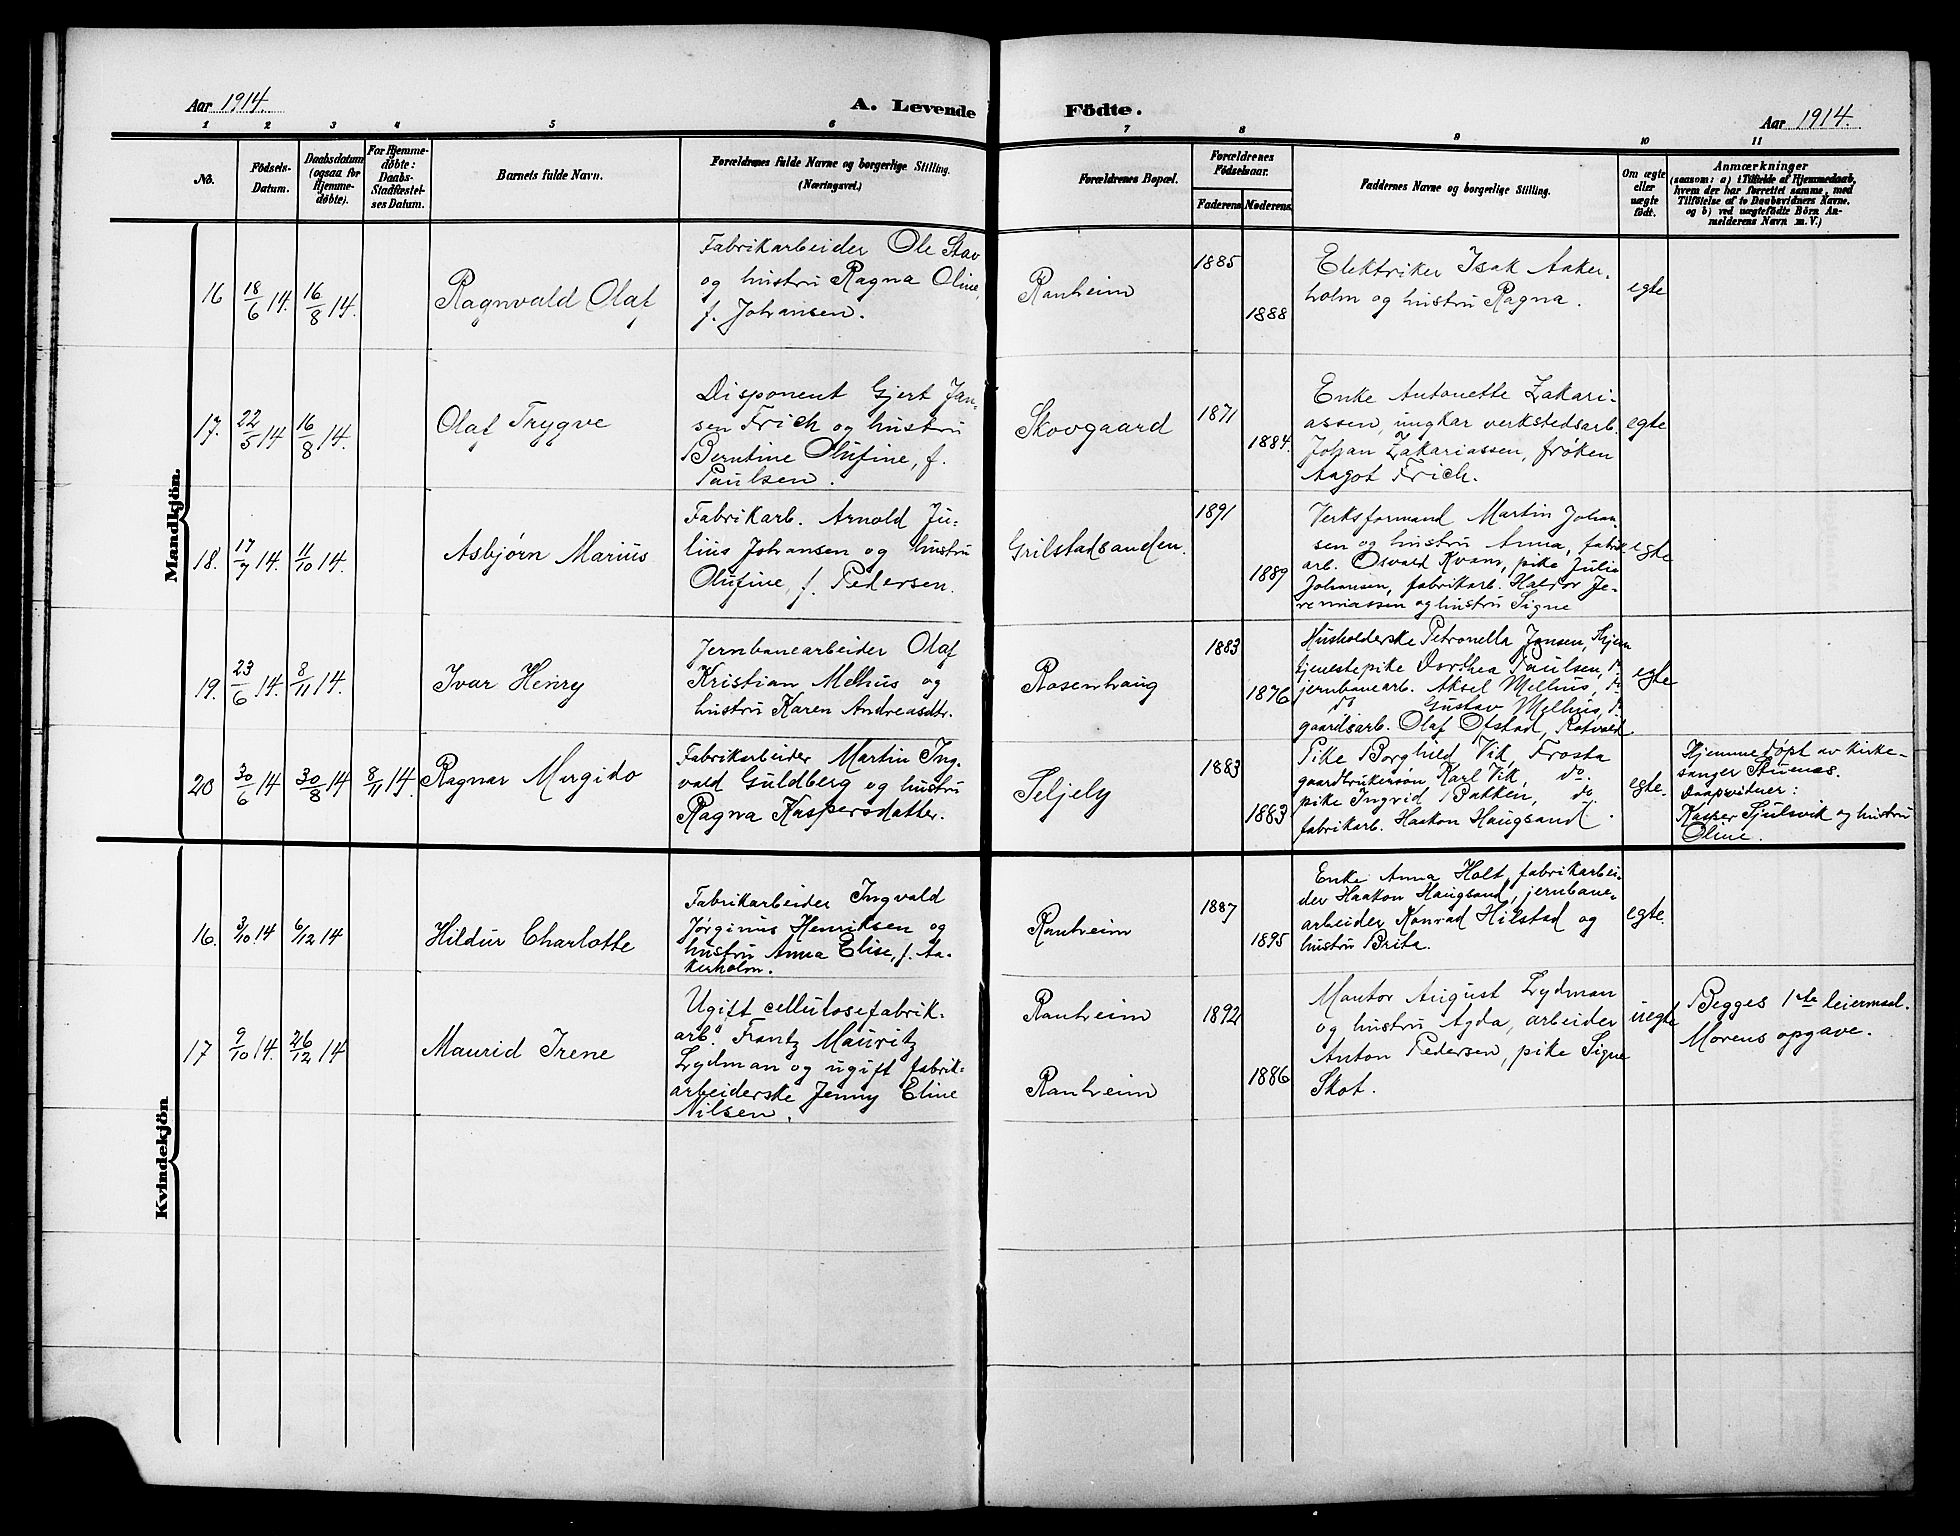 Aar 1914.
A. Levende Födte.
Aar 1914.
1 2 3 4 5 6 7 8 9 10 11
No.
Födsels-
Datum.
Daabsdatum
(ogsaa for
Hjemme-
døbte).
For Hjemme-
døbte:
Daabs-
Stadfæstel-
ses Datum.
Barnets fulde Navn.
Forældrenes fulde Navne og borgerlige Stilling.
(Næringsvei.)
Forældrenes Bopæl.
Forældrenes
Födselsaar.
Faderens Moderens
Faddernes Navne og borgerlige Stilling.
Om ægte
eller
uægte
født.
Anmærkninger
(saasom: a) i Tilfælde af Hjemmedaab,
hvem der har forrettet samme, med
Tilföielse af to Daabsvidners Navne,
og b) ved uægtefödte Börn An-
melderens Navn m. V.)
Mandkjön.
16 18/6 14. 16/8 14.
Ragnvald Olaf
Fabrikarbeider Ole Stav
og hustru Ragna Oline,
f. Johansen.
Ranheim
1885
1888
Elektriker Isak Aaker-
holm og hustru Ragna.
egte
17. 22/5 14 16/8 14.
Olaf Trygve
Disponent Gjert Jan-
sen Frich og hustru
Berntine Olufine, f.
Paulsen.
Skovgaard
1871
1884.
Enke Antonette Zakari-
assen, ungkar verkstedsarb.
Johan Zakariassen, frøken
Aagot Frich.
egte
18. 17/7 14. 11/10 14.
Asbjørn Marius
Fabrikarb. Arnold Ju-
lius Johansen og hustru
Olufine, f. Pedersen.
Grilstadsanden.
1891
1889
Verksformand Martin Johan-
sen og hustru Anna, fabrik-
arb. Osvald Kvans, pike Julie
Johansen, fabrikarb. Haldor Je-
remiassen og hustru Signe
egte
19. 23/6 14. 8/11 14.
Ivar Henry
Jernbanearbeider Olaf
Kristian Melhus og
hustru Karen Andreasdtr.
Rosenhaug
1883
1876
Husholderske Petronella Jensen,
tjenestepike Dorthea Paulsen,
jernbanearb. Aksel Melhus,
do Gustav Melhus,
gaardsarb. Olaf Olstad, Rotvold
egte
20 30/6 14 30/8 14 8/11 14.
Ragnar Margido
Fabrikarbeider Martin Ing-
vald Guldberg og hustru
Ragna Kaspersdatter.
Seljely
1883
1883
Pike Borghild Vik, Frosta
gaardbrukersøn Karl Vik, do.
pike Ingrid Bakken, do.
fabrikarb. Haakon Haugsand.
egte.
Hjemmedøpt av kirke-
sanger Stuenes.
Daapsvidner:
Kasper Sjulsvik og hustru
Oline.
Kvindekjön
16. 3/10 14 6/12 14
Hildur Charlotte
Fabrikarbeider Ingvald
Jørginus Henriksen og
hustru Anna Elise, f. Aa-
kerholm.
Ranheim
1887
1895
Enke Anna Holt, fabrikarbei-
der Haakon Haugsand, jernbane-
arbeider Konrad Hilstad og
hustru Brita.
egte.
17 9/10 14. 26/12 14
Maurid Irene
Ugift cellulosefabrik-
arb. Frantz Mauritz
Lydman og ugift fabrik-
arbeiderske Jenny Eline
Nilsen.
Ranheim
Ranheim
1892
1886
Montør August Lydman
og hustru Agda, arbeider
Anton Pedersen, pike Signe
Skot.
uegte
Begges 1ste leiermaal.
Morens opgave.